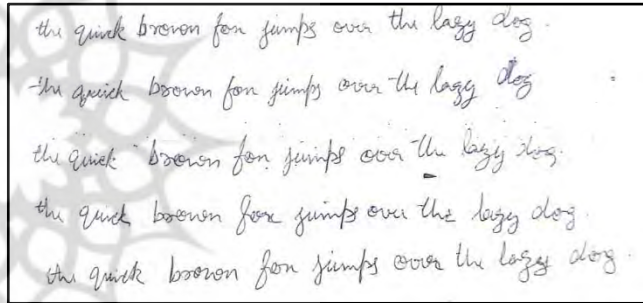 the quick brown fox jumps over the lazy dog.
the quick brown fox jumps over the lazy dog
the quick brown fox jumps over the lazy dog.
the quick brown fox jumps over the lazy dog.
the quick brown fox jumps over the lazy dog.